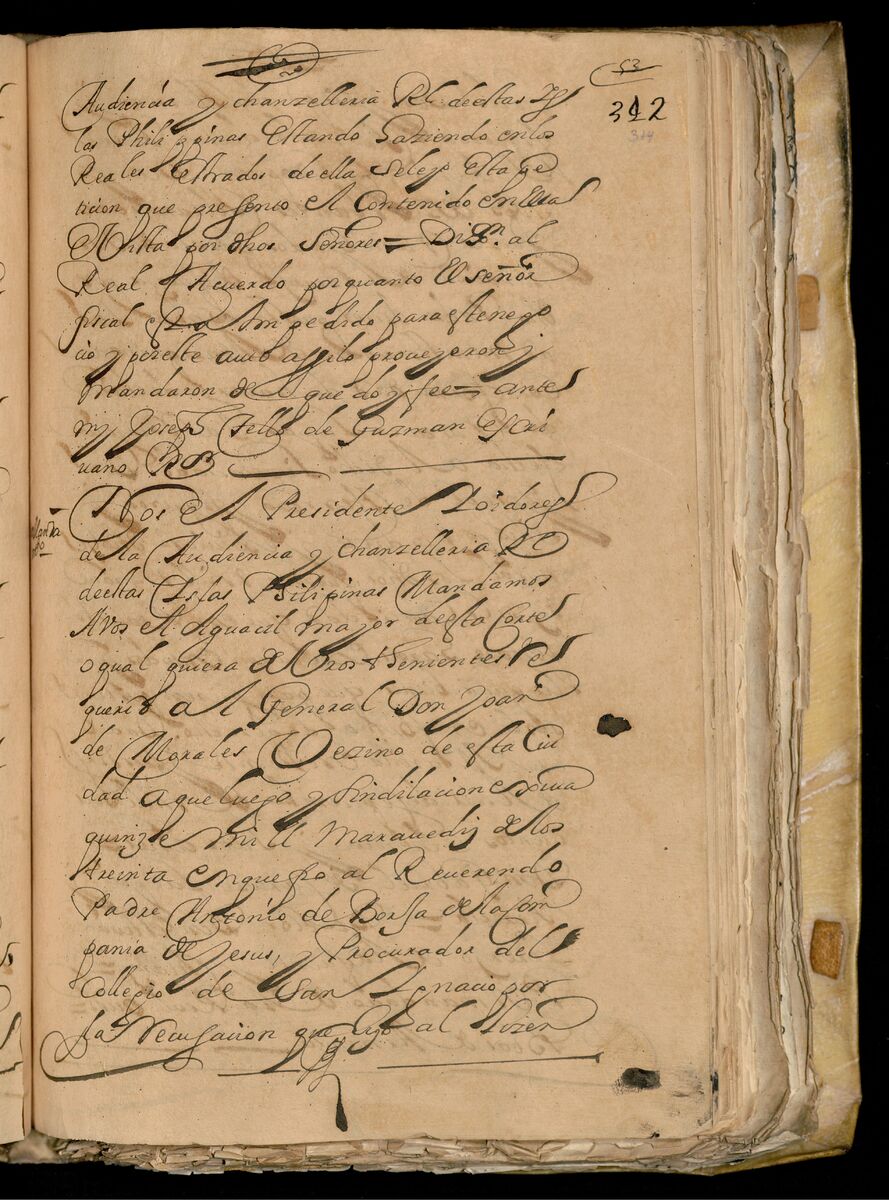 53
312
314
Audiencia y chanzelleria Rl. de estas Ys
las Philipinas Estando haziendo en los
Reales Estrados de ella se leyo esta pe
ticion que presento el Contenido en ella
Vista por dhos señores = Dixn. al
Real Acuerdo por quanto El señor
fiscal esta Ympedido para este nego
cio y por este auto assi lo proveyeron y
mandaron de que doy fee = ante
my Joseph Tello de Guzman Escri
uano
Nos el Presidente y oidores
de la Audiencia y chanzelleria Rl
de estas Islas Philipinas Mandamos
A vos el Aguacil mayor de esta Corte
o qual quiera de vros thenientes Re
querid al General Don Joan
de Morales Vezino de esta Ciu
dad a que luego y sin dilacion exiua
quinze mill maravedis de los
treinta en que fio al Reuerendo
Padre Antonio de Borja de la Com
pania de Jesus, y Procurador del
Collegio de San Ygnacio por
la recusacion que hizo al lizen